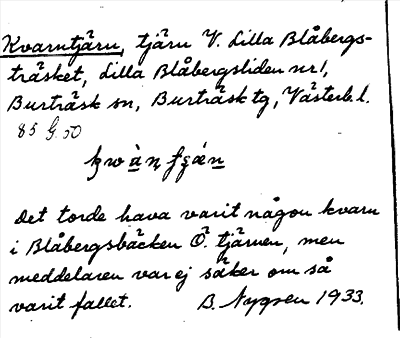 Kvarntjärn, tjärn V. Lilla Blåbergs-
träsket, Lilla Blåbergsliden nr 1,
Burträsk sn, Burträsk tg, Västerb. l.
85 G 50
Det torde hava varit någon kvarn
i Blåbergsbäcken Ö. tjärnen, men
meddelaren var ej säker om så
varit fallet. B. Nygren 1933.